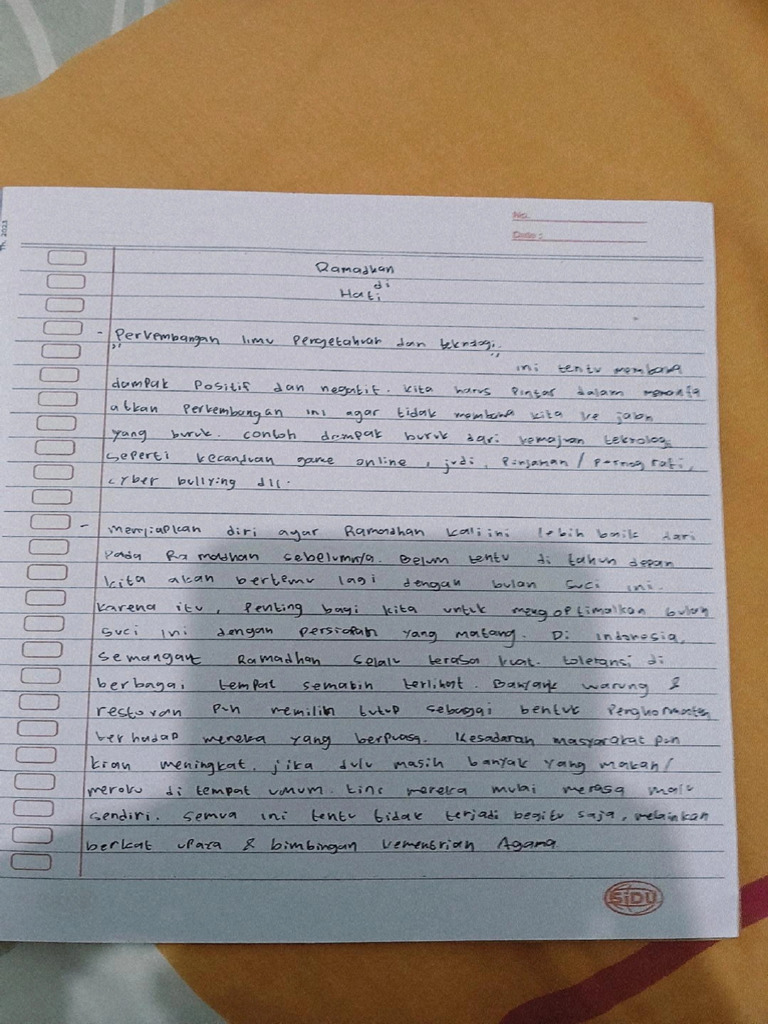 No.
Date :
2023
Ramadhan
di
Hati
- "Perkembangan ilmu pengetahuan dan teknologi"
ini tentu membawa
dampak positif dan negatif. kita harus pintar dalam memanfa
atkan perkembangan ini agar tidak membawa kita ke jalan
yang buruk. contoh dampak buruk dari kemajuan teknologi
seperti kecanduan game online, judi, pinjaman / pornografi,
cyber bullying dll.
- menyiapkan diri agar Ramadhan kali ini lebih baik dari
pada Ramadhan sebelumnya. Belum tentu di tahun depan
kita akan bertemu lagi dengan bulan suci ini.
karena itu, penting bagi kita untuk mengoptimalkan bulan
suci ini dengan persiapan yang matang. Di indonesia,
semangat Ramadhan selalu terasa kuat. toleransi di
berbagai tempat semakin terlihat. Banyak warung &
restoran pun memilih tutup sebagai bentuk penghormatan
terhadap mereka yang berpuasa. Kesadaran masyarakat pun
kian meningkat. jika dulu masih banyak yang makan/
meroko di tempat umum. kini mereka mulai merasa malu
sendiri. semua ini tentu tidak terjadi begitu saja, melainkan
berkat upaya & bimbingan kementrian Agama
SiDU